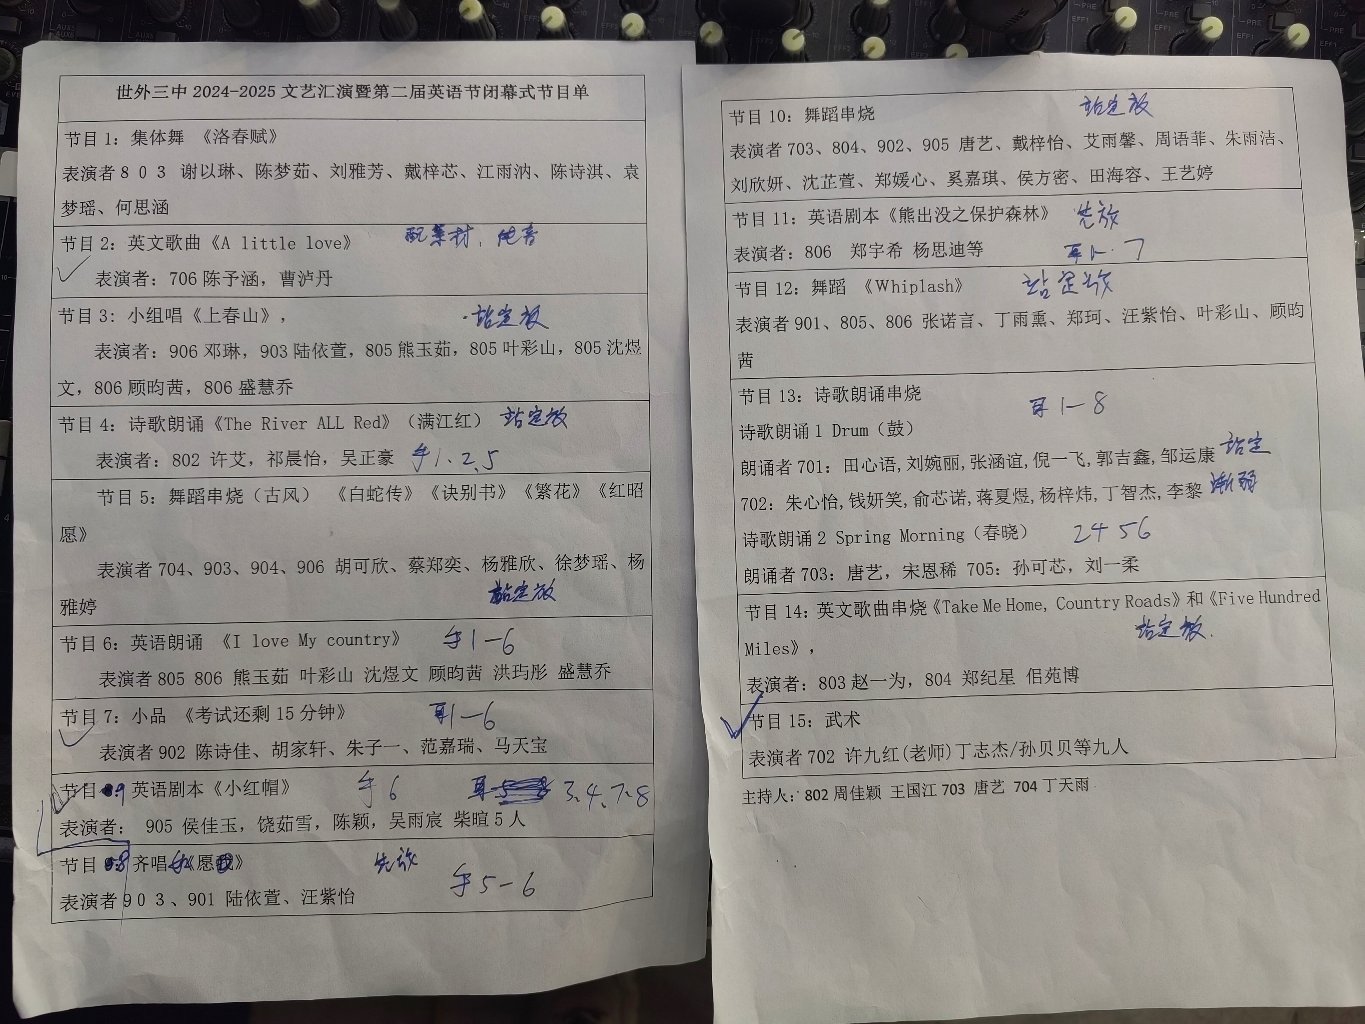 世外三中 2024-2025 文艺汇演暨第二届英语节闭幕式节目单
节目 1：集体舞 《洛春赋》
表演者 8 0 3 谢以琳、陈梦茹、刘雅芳、戴梓芯、江雨汭、陈诗淇、袁
梦瑶、何思涵
节目 2：英文歌曲《A little love》 纯音
表演者：706 陈予涵，曹泸丹
节目 3：小组唱《上春山》， 站定放
表演者：906 邓琳，903 陆依萱，805 熊玉茹，805 叶彩山，805 沈煜
文，806 顾昀茜，806 盛慧乔
节目 4：诗歌朗诵《The River ALL Red》（满江红） 站定放
表演者：802 许艾，祁晨怡，吴正豪 手1、2、5
节目 5：舞蹈串烧（古风） 《白蛇传》《诀别书》《繁花》《红昭
愿》
表演者 704、903、904、906 胡可欣、蔡郑奕、杨雅欣、徐梦瑶、杨
雅婷 站定放
节目 6：英语朗诵 《I love My country》 手1-6
表演者 805 806 熊玉茹 叶彩山 沈煜文 顾昀茜 洪玙彤 盛慧乔
节目 7：小品 《考试还剩 15 分钟》 耳1-6
表演者 902 陈诗佳、胡家轩、朱子一、范嘉瑞、马天宝
节目 9 英语剧本《小红帽》 手6 耳 3、4、7、8
表演者： 905 侯佳玉，饶茹雪，陈颖，吴雨宸 柴暄 5 人
节目 8 齐唱《愿我》 先放
手5-6
表演者 9 0 3 、901 陆依萱、汪紫怡
节目 10：舞蹈串烧 站定放
表演者 703、804、902、905 唐艺、戴梓怡、艾雨馨、周语菲、朱雨洁、
刘欣妍、沈芷萱、郑媛心、奚嘉琪、侯方密、田海容、王艺婷
节目 11：英语剧本《熊出没之保护森林》 先放
表演者：806 郑宇希 杨思迪等 耳1-7
节目 12：舞蹈 《Whiplash》 站定放
表演者 901、805、806 张诺言、丁雨熏、郑珂、汪紫怡、叶彩山、顾昀
茜
节目 13：诗歌朗诵串烧 耳1-8
诗歌朗诵 1 Drum（鼓）
朗诵者 701：田心语,刘婉丽,张涵谊,倪一飞,郭吉鑫,邹运康 站定
702：朱心怡,钱妍笑,俞芯诺,蒋夏煜,杨梓炜,丁智杰,李黎 渐弱
诗歌朗诵 2 Spring Morning（春晓） 2456
朗诵者 703：唐艺，宋恩稀 705：孙可芯，刘一柔
节目 14：英文歌曲串烧《Take Me Home, Country Roads》和《Five Hundred
Miles》， 站定放.
表演者：803 赵一为，804 郑纪星 佀苑博
节目 15：武术
表演者 702 许九红(老师)丁志杰/孙贝贝等九人
主持人：802 周佳颖 王国江 703 唐艺 704 丁天雨